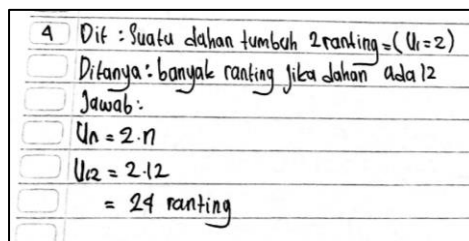 4 Dit : Suatu dahan tumbuh 2 ranting = (U₁ = 2)
Ditanya : banyak ranting jika dahan ada 12
Jawab :
Un = 2.n
U12 = 2.12
= 24 ranting